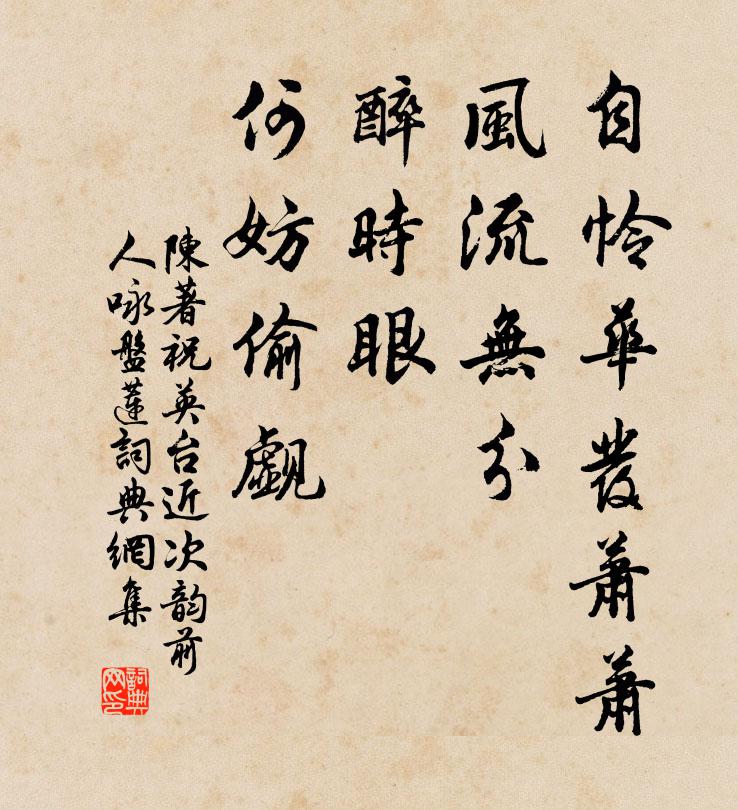 自怜華發蕭蕭
風流無分
醉時眼
何妨偷覷
陳著祝英台近次韵前
人咏盤蓮詞典網集
詞典网印